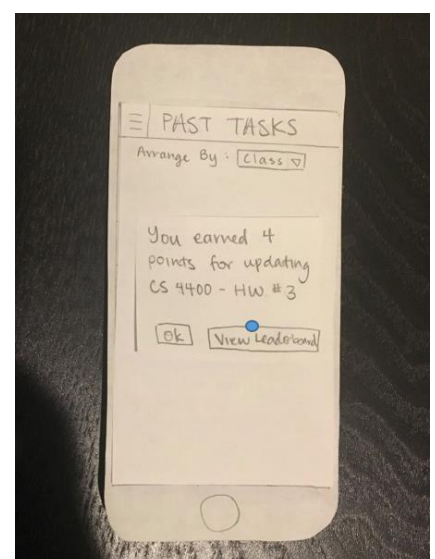 PAST TASKS
Arrange By: Class
You earned 4
points for updating
CS 4400 - HW #3
Ok View Leaderboard